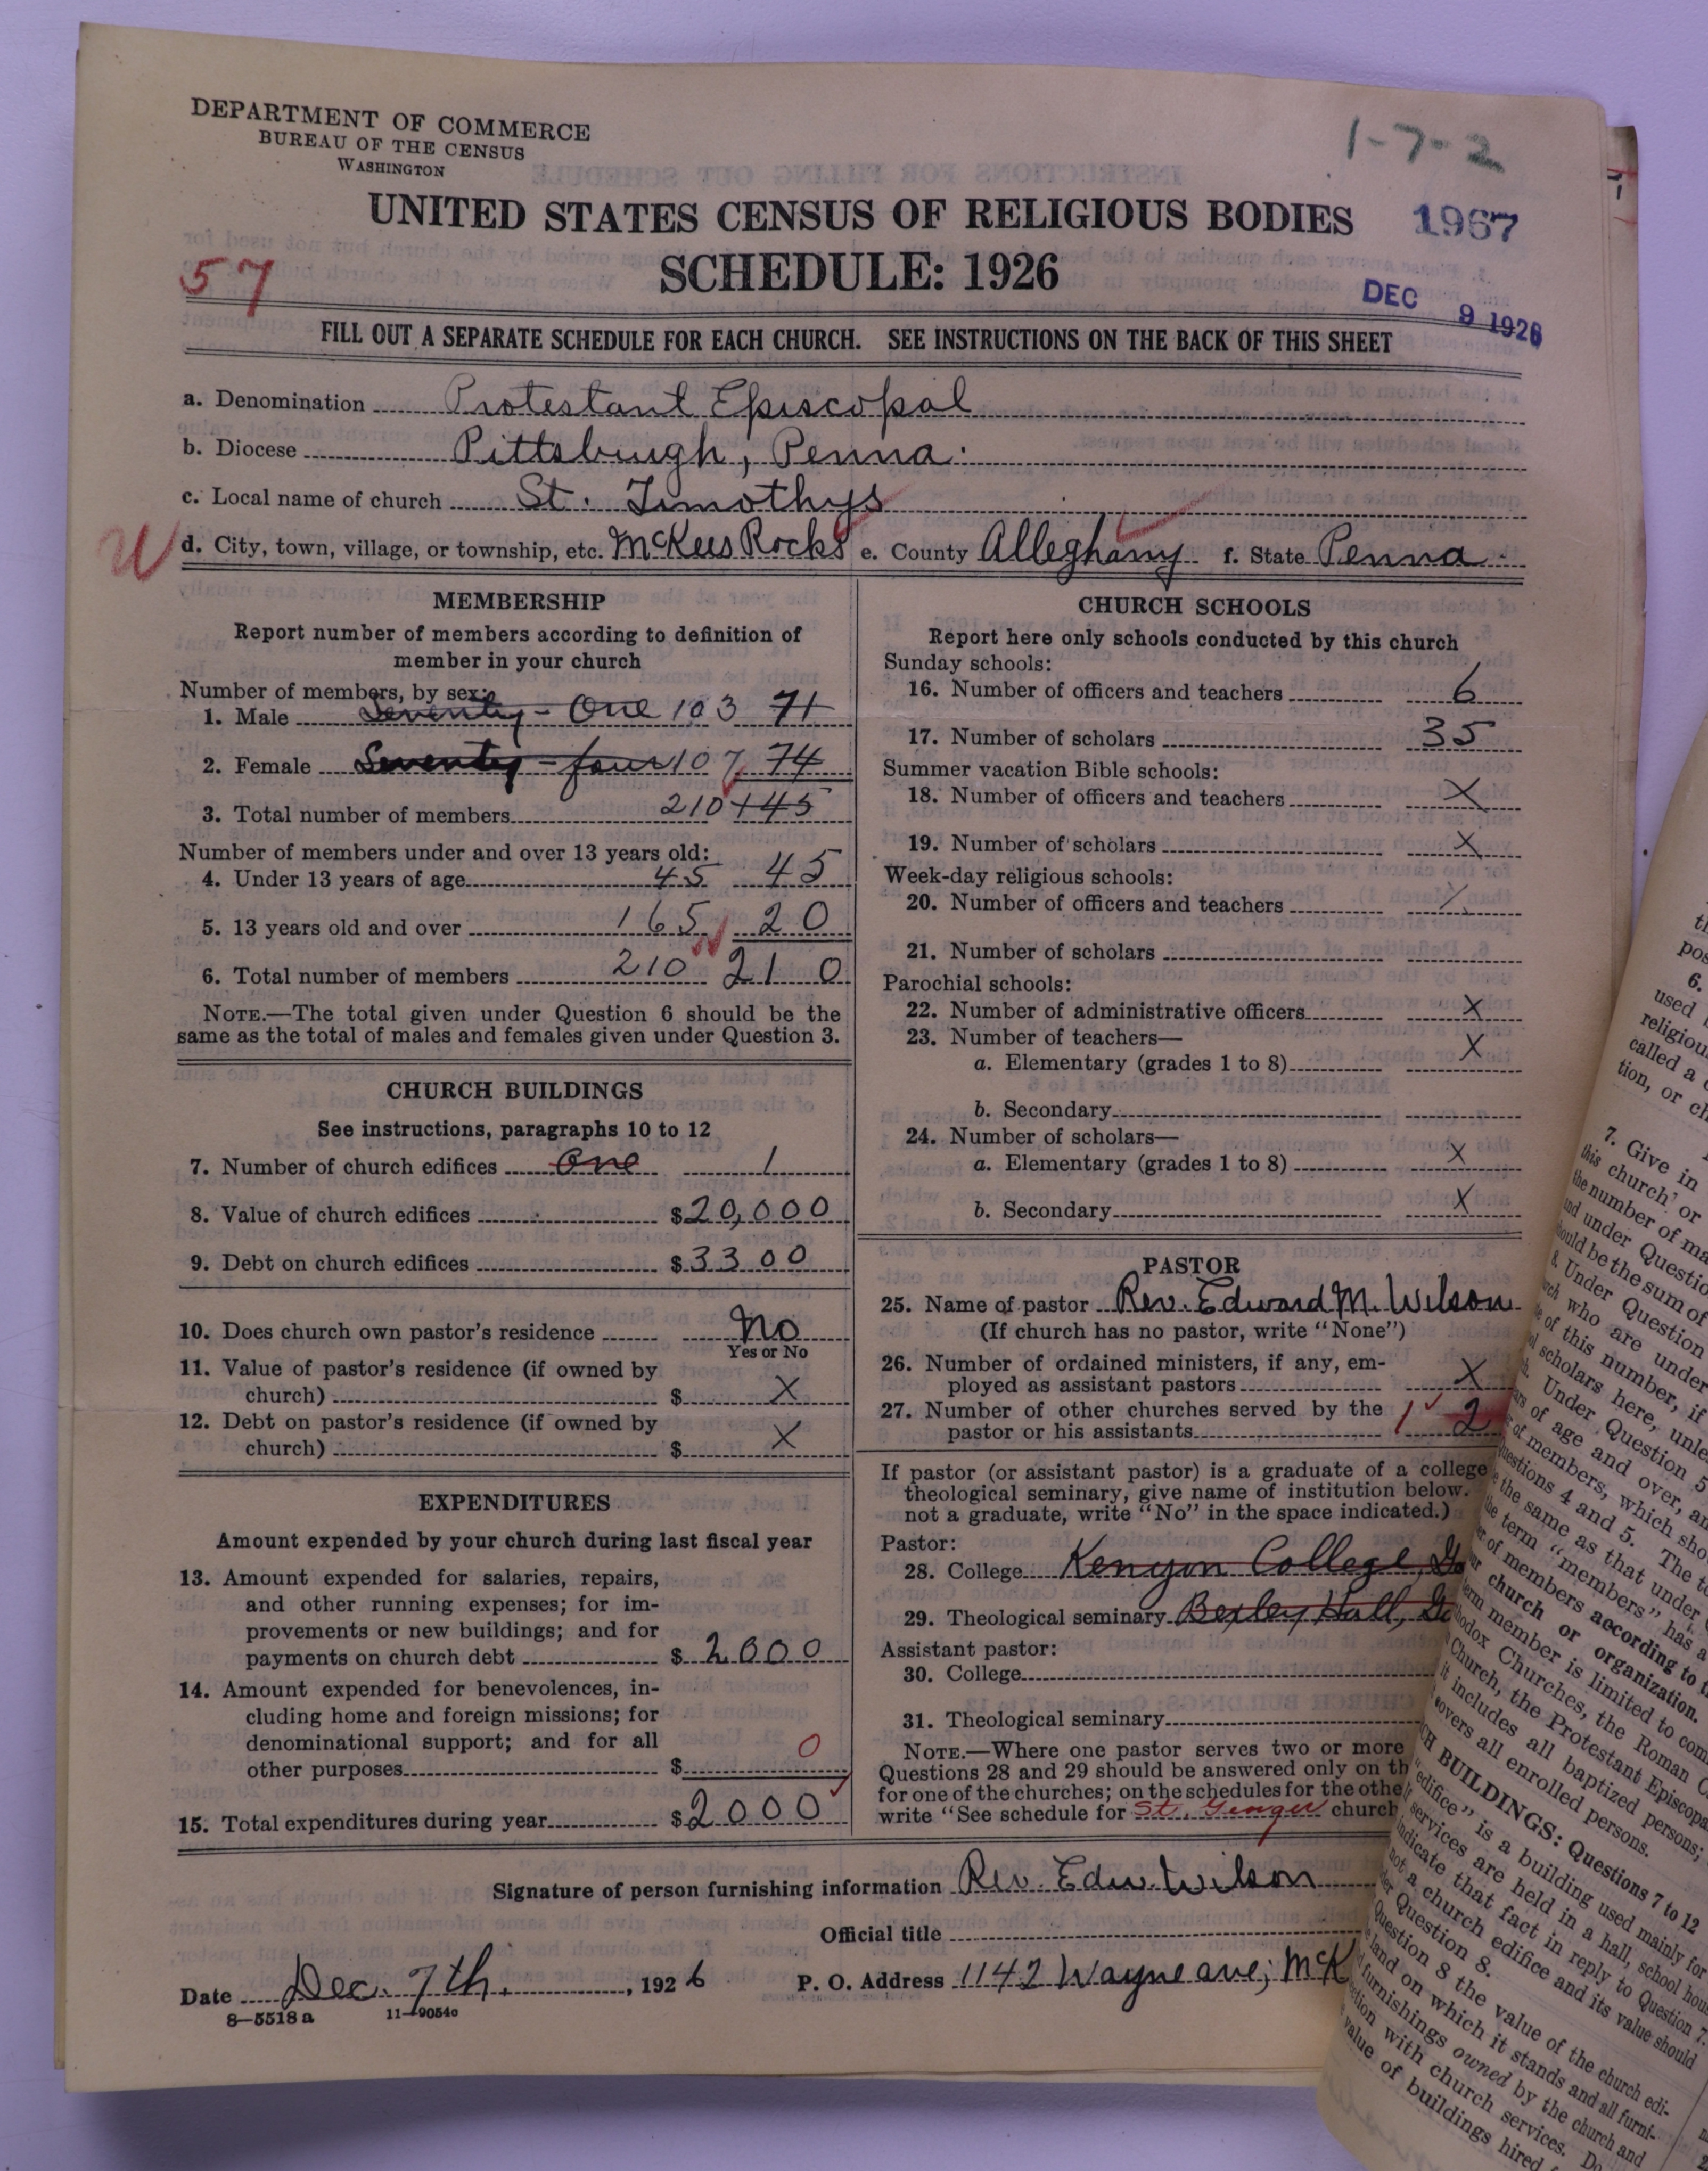 DEPARTMENT OF COMMERCE
BUREAU OF THE CENSUS
WASHINGTON
1-7-2
UNITED STATES CENSUS OF RELIGIOUS BODIES 1967
SCHEDULE: 1926
57
DEC 9 1926
FILL OUT A SEPARATE SCHEDULE FOR EACH CHURCH. SEE INSTRUCTIONS ON THE BACK OF THIS SHEET
a. Denomination Protestant Episcopal
b. Diocese Pittsburgh, Penna.
c. Local name of church St. Timothys
d. City, town, village, or township, etc. McKees Rocks e. County Alleghany f. State Penna.
MEMBERSHIP
Report number of members according to definition of
member in your church
Number of members, by sex:
1. Male Seventy-One 103 71
2. Female Seventy-four 107 74
3. Total number of members 210 145
Number of members under and over 13 years old:
4. Under 13 years of age 45 45
5. 13 years old and over 165 20
6. Total number of members 210 210
NOTE.—The total given under Question 6 should be the
same as the total of males and females given under Question 3.
CHURCH BUILDINGS
See instructions, paragraphs 10 to 12
7. Number of church edifices One 1
8. Value of church edifices $20,000
9. Debt on church edifices $3300
10. Does church own pastor's residence No
Yes or No
11. Value of pastor's residence (if owned by
church) $ X
12. Debt on pastor's residence (if owned by
church) $ X
EXPENDITURES
Amount expended by your church during last fiscal year
13. Amount expended for salaries, repairs,
and other running expenses; for im-
provements or new buildings; and for
payments on church debt $ 2000
14. Amount expended for benevolences, in-
cluding home and foreign missions; for
denominational support; and for all
other purposes $ 0
15. Total expenditures during year $2000
CHURCH SCHOOLS
Report here only schools conducted by this church
Sunday schools:
16. Number of officers and teachers 6
17. Number of scholars 35
Summer vacation Bible schools:
18. Number of officers and teachers X
19. Number of scholars X
Week-day religious schools:
20. Number of officers and teachers X
21. Number of scholars
Parochial schools:
22. Number of administrative officers X
23. Number of teachers—
a. Elementary (grades 1 to 8) X
b. Secondary
24. Number of scholars—
a. Elementary (grades 1 to 8) X
b. Secondary X
PASTOR
25. Name of pastor Rev. Edward M. Wilson
(If church has no pastor, write "None")
26. Number of ordained ministers, if any, em-
ployed as assistant pastors X
27. Number of other churches served by the
pastor or his assistants 1 2
If pastor (or assistant pastor) is a graduate of a college
theological seminary, give name of institution below.
not a graduate, write "No" in the space indicated.)
Pastor:
28. College Kenyon College,
29. Theological seminary Bexley Hall,
Assistant pastor:
30. College
31. Theological seminary
NOTE.—Where one pastor serves two or more
Questions 28 and 29 should be answered only on th
for one of the churches; on the schedules for the othe
write "See schedule for St. church
Signature of person furnishing information Rev. Edw. Wilson
Official title
Date Dec. 7th, 1926 P. O. Address 1142 Wayne ave; McK
8—5518 a 11—9054c
6.
used
religiou
called a
tion, or ch
7. Give in
this church or
the number of ma
and under Questio
ould be the sum of
8. Under Question
who are under
of this number, if
scholars here, unle
Under Question 5
of age and over, an
of members, which sho
uestions 4 and 5. The to
the same as that under
term "members" has a
of members according to t
church or organization.
member is limited to com
odox Churches, the Roman C
Church, the Protestant Episcopa
it includes all baptized persons;
overs all enrolled persons.
CH BUILDINGS: Questions 7 to 12
"edifice" is a building used mainly for
services are held in a hall, school hou
indicate that fact in reply to Question 7.
not a church edifice and its value should
Question 8.
Question 8 the value of the church edi-
land on which it stands and all furni-
furnishings owned by the church and
tion with church services. Do
value of buildings hired